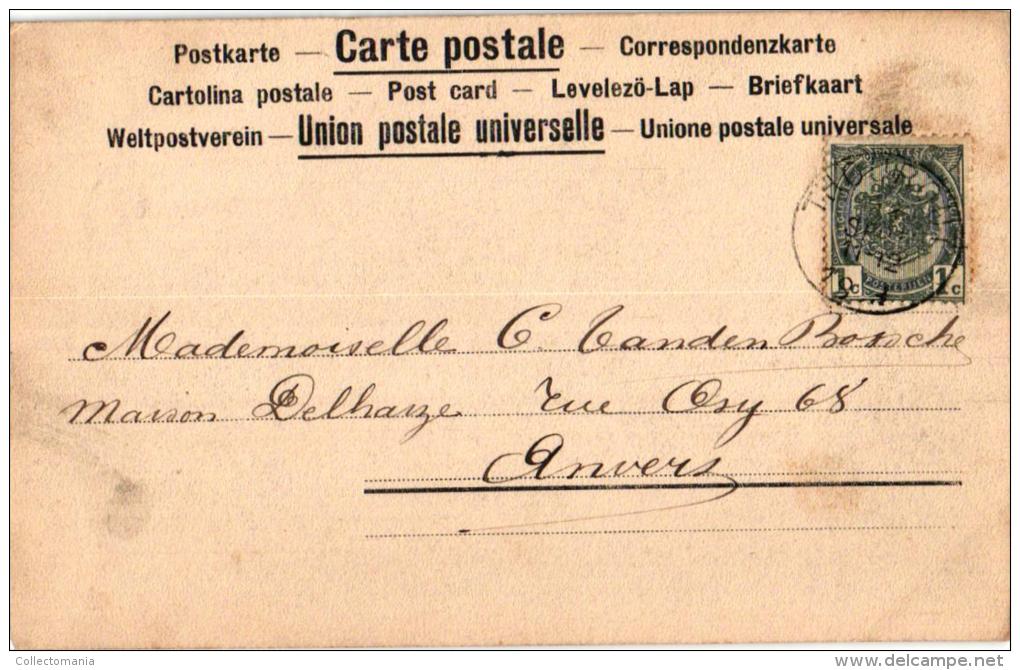 Postkarte — Carte postale — Correspondenzkarte
Cartolina postale — Post card — Levelezö-Lap — Briefkaart
Weltpostverein — Union postale universelle — Unione postale universale
1c POSTERIJEN 1c
Mademoiselle C. Vanden Bossche
Maison Delhaize Rue Osy 68
Anvers
Collectomania
delcampe.net